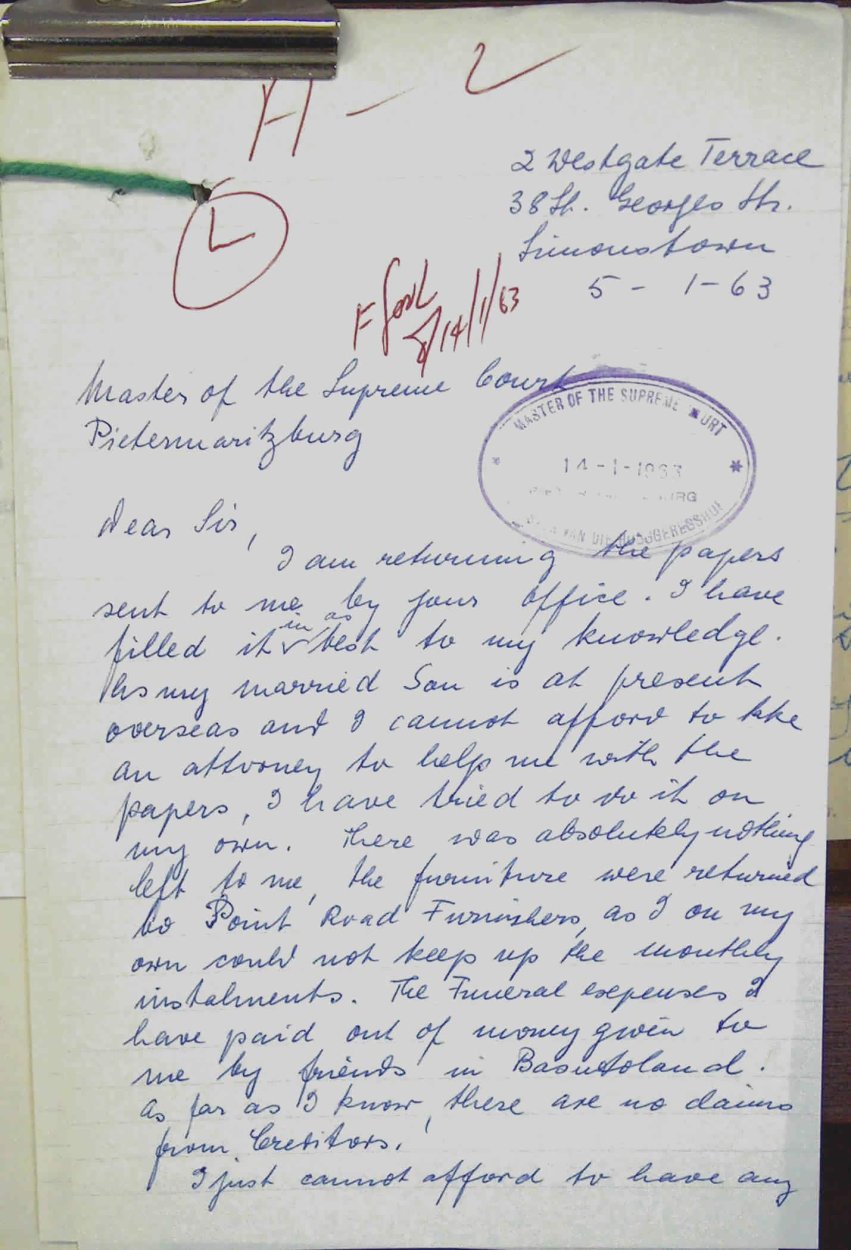 H - 2
2 Westgate Terrace
38 St. Georges Str.
Simonstown
5 - 1-63
L
14/1/63
Master of the Supreme Court
Pietermaritzburg
MASTER OF THE SUPREME COURT
14-1-1963
VAN DIE HOOGGEREGSHOF
Dear Sir,
I am returning the papers
sent to me by your office. I have
filled it in as best to my knowledge.
As my married Son is at present
overseas and I cannot afford to take
an attorney to help me with the
papers, I have tried to do it on
my own. There was absolutely nothing
left to me, the furniture were returned
to Point Road Furnishers, as I on my
own could not keep up the monthly
instalments. The Funeral expenses I
have paid out of money given to
me by friends in Basutoland.
As far as I know, there are no claims
from Creditors.
I just cannot afford to have any